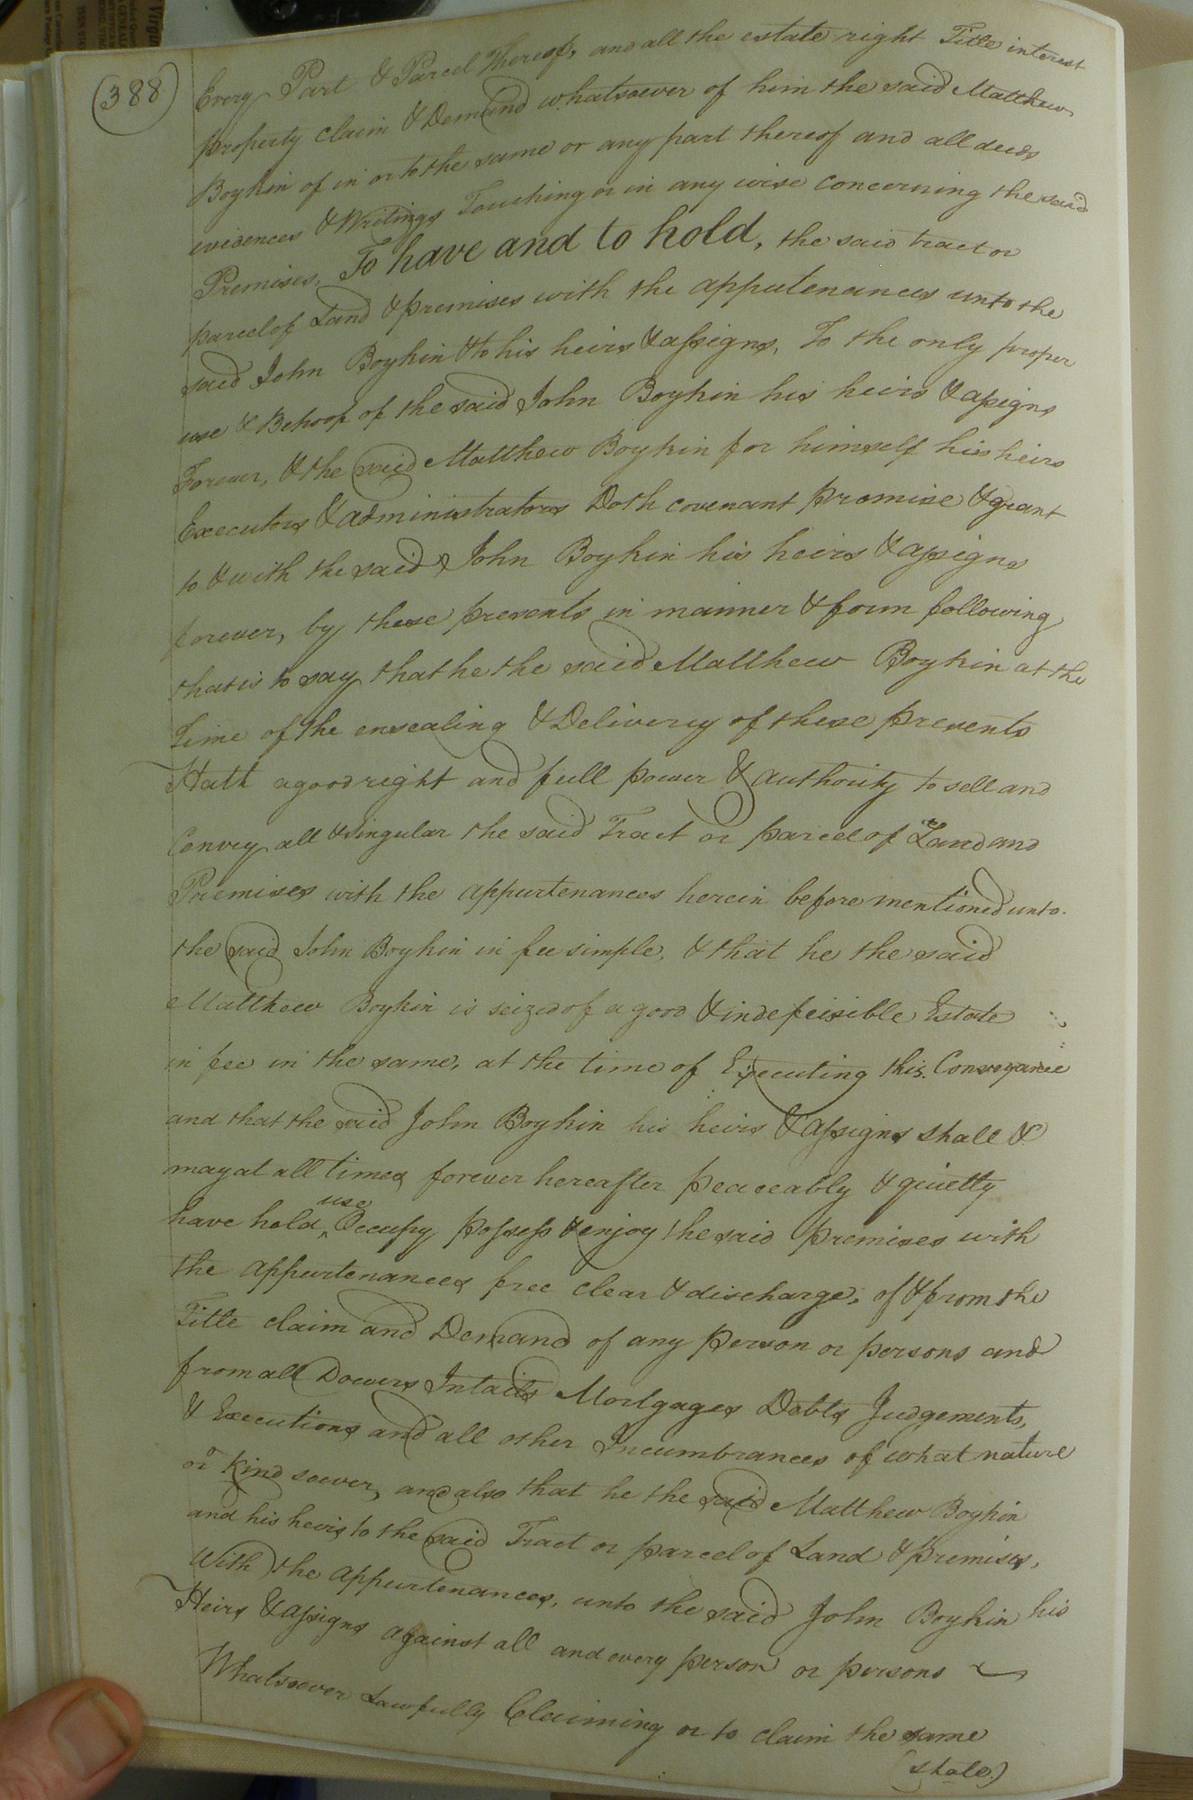 (388)
Every Part & Parcel Thereof, and all the estate right Title interest
property claim & Demand whatsoever of him the said Matthew
Boykin of in or to the same or any part thereof and all deeds
evidences & Writings Touching or in any wise concerning the said
Premises, To have and to hold, the said tract or
parcel of Land & premises with the appurtenances unto the
said John Boykin & to his heirs & assigns, To the only proper
use & Behoof of the said John Boykin his heirs & assigns
Forever, & the said Matthew Boykin for himself his heirs
Executors & administrators Doth covenant promise & grant
to & with the said John Boykin his heirs & assigns
forever, by these presents in manner & form following
that is to say that he the said Matthew Boykin at the
Time of the ensealing & Delivery of these presents
Hath a good right and full power & authority to sell and
Convey all & singular the said Tract or parcel of Land and
Premises with the appurtenances herein before mentioned unto
the said John Boykin in fee simple, & that he the said
Matthew Boykin is seized of a good & indefeisible Estate
in fee in the same, at the time of Executing this Conveyance
and that the said John Boykin his heirs & assigns shall &
may at all times forever hereafter peaceably & quietly
have hold, use Occupy possess & enjoy the said premises with
the appurtenances free clear & discharge, of & from the
Title claim and Demand of any person or persons and
from all Dowers Intails Mortgages Debts Judgements,
& Executions and all other Incumbrances of what nature
or kind soever, and also that he the said Matthew Boykin
and his heirs to the said Tract or parcel of Land & premises,
With the appurtenances, unto the said John Boykin his
Heirs & assigns against all and every person or persons
Whatsoever Lawfully Claiming or to claim the same
(shall)